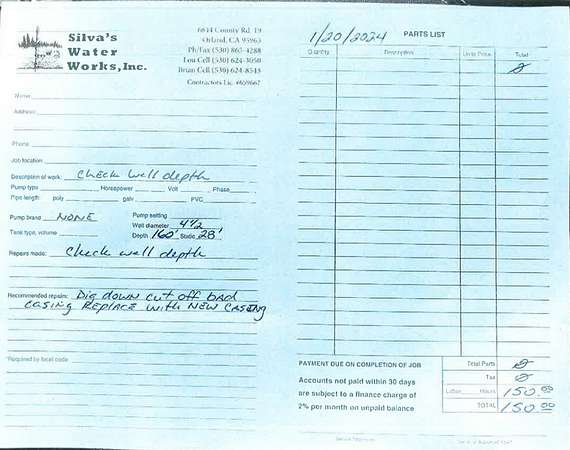 Silva's
Water
Works, Inc.
6644 County Rd. 19
Orland, CA 95963
Ph/Fax (530) 865-4288
Lou Cell (530) 624-3050
Brian Cell (530) 624-8543
Contractors Lic. #659667
Name
Address
Phone
Job location
Description of work: Check well depth
Pump type Horsepower Volt Phase
Pipe length: poly galv PVC
Pump brand NONE Pump setting
Well diameter 4 1/2
Tank type, volume Depth 160' Static 28'
Repairs made: Check well depth
Recommended repairs: Dig down cut off bad
casing Replace with NEW CASING
*Required by local code
1/20/2024 PARTS LIST
Quantity Description Unite Price Total
PAYMENT DUE ON COMPLETION OF JOB
Accounts not paid within 30 days
are subject to a finance charge of
2% per month on unpaid balance
Total Parts
Tax
Labor Hours 150.00
TOTAL 150.00